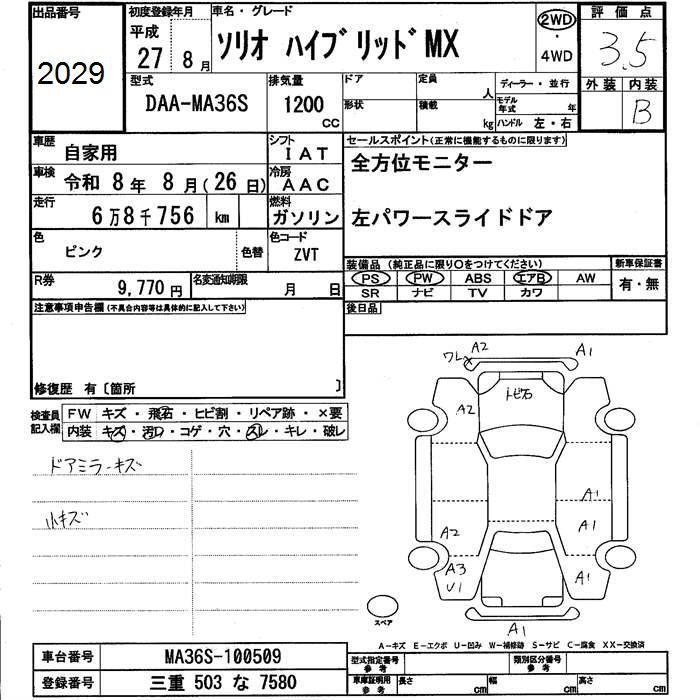 出品番号 初度登録年月 車名・グレード 評価点
2029 平成 27年 8月 ソリオ ハイブリッドMX 2WD・4WD 3.5
型式 排気量 ドア 定員 人 ディーラー・並行 外装 内装
DAA-MA36S 1200 CC 形状 積載 kg モデル年式 年 ハンドル 左・右 B
車歴 自家用 シフト IAT セールスポイント(正常に機能するものに限ります)
車検 令和 8年 8月(26日) 冷房 AAC 全方位モニター
走行 6万8千756 km 燃料 ガソリン 左パワースライドドア
色 ピンク 色替 色コード ZVT
装備品 (純正品に限り○をつけてください) 新車保証書
R券 9,770円 名変通知期限 月 日 PS PW ABS エアB AW 有・無
SR ナビ TV カワ
注意事項申告欄(不具合内容等は具体的に記入して下さい) 後日品
修復歴 有〔箇所 〕
検査員記入欄 FW キズ・飛石・ヒビ割・リペア跡・×要
内装 キズ・汚レ・コゲ・穴・スレ・キレ・破レ
ドアミラーキズ
小キズ
ワレ A2 A1
A2 トビ石
A1
A2 A1
A3 U1 A1
スペア A1
A-キズ E-エクボ U-凹み W-補修跡 S-サビ C-腐食 XX-交換済
車台番号 MA36S-100509 型式指定番号 参考 類別区分番号 参考
登録番号 三重 503 な 7580 車庫証明用 参考 長さ cm 幅 cm 高さ cm